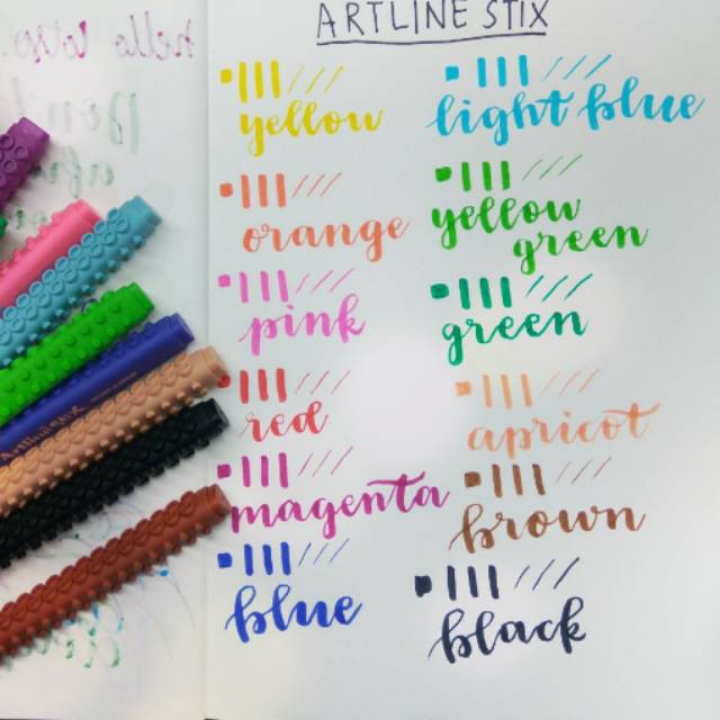 ARTLINE STIX
yellow
orange
pink
red
magenta
blue
light blue
yellow
green
green
apricot
brown
black
hello
Artline STIX